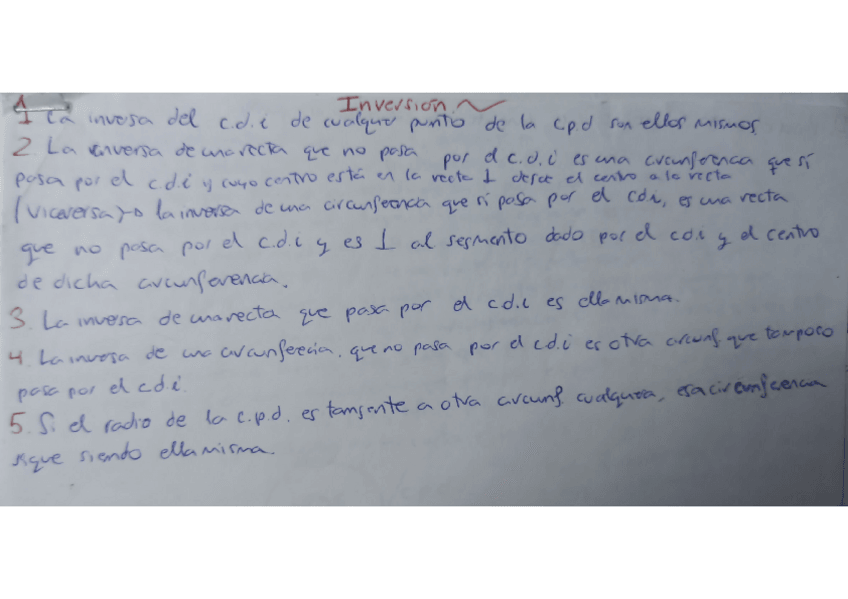 Inversión
1 La inversa del c.d.i de cualquier punto de la c.p.d son ellos mismos
2. La inversa de una recta que no pasa por el c.d.i es una circunferencia que sí
pasa por el c.d.i y cuyo centro está en la recta ⊥ desde el centro a la recta
(viceversa) → la inversa de una circunferencia que sí pasa por el cdi, es una recta
que no pasa por el c.d.i y es ⊥ al segmento dado por el c.d.i y el centro
de dicha circunferencia.
3. La inversa de una recta que pasa por el c.d.i es ella misma.
4. La inversa de una circunferecia, que no pasa por el c.d.i es otra circunf que tampoco
pasa por el c.d.i.
5. Si el radio de la c.p.d. es tangente a otra circunf cualquiera, esa circunferencia
sigue siendo ella misma.